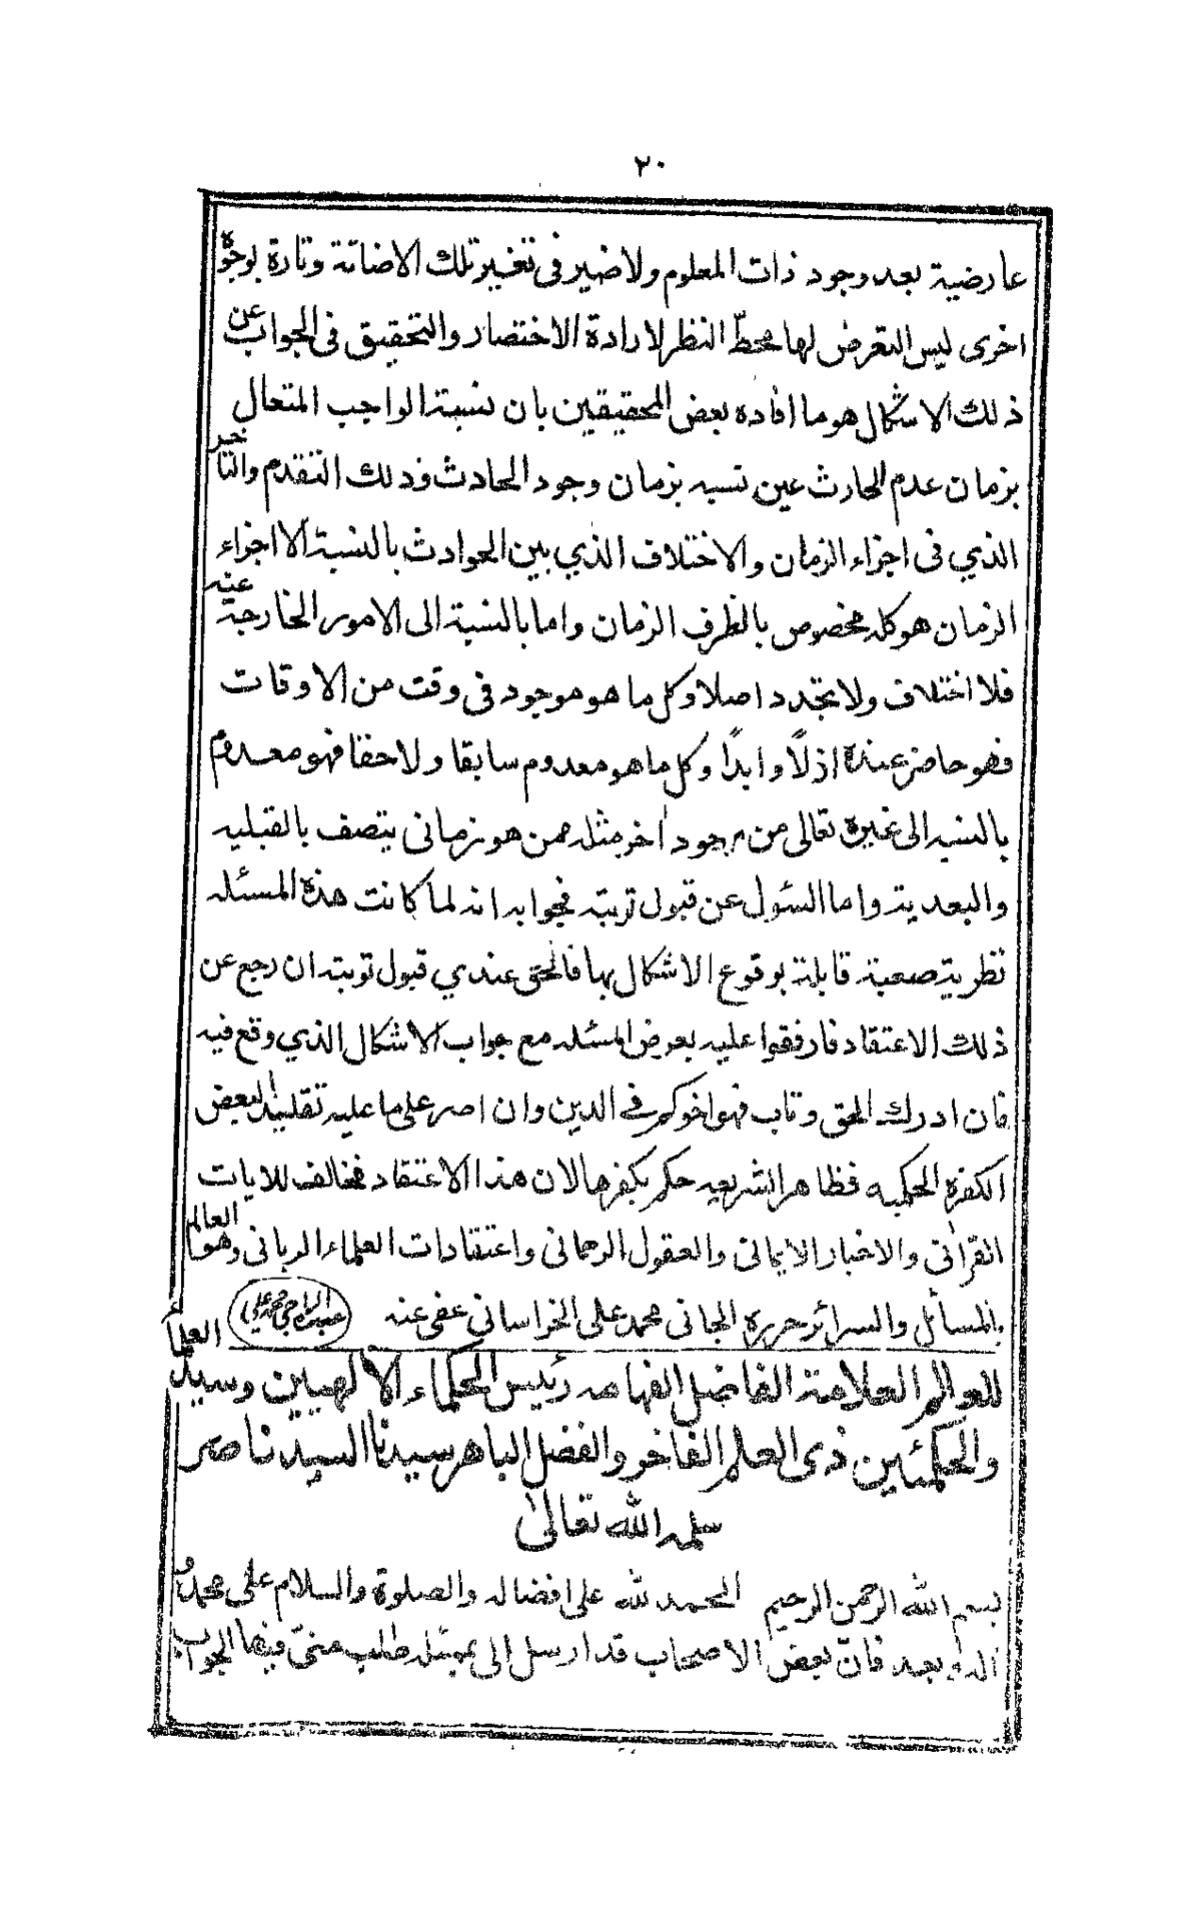 ٢٠
عارضية بعد وجود ذات المعلوم ولا ضير فى تغير تلك الاضافة وتارة بوجوه
اخرى ليس التعرض لها محطّ النظر لارادة الاختصار والتحقيق فى الجواب عن
ذلك الاشكال هو ما افاده بعض المحقيقين بان نسبة الواجب المتعال
بزمان عدم الحادث عين نسبه بزمان وجود الحادث وذلك التقدم والتاخر
الذي فى اجزاء الزمان والاختلاف الذي بين الحوادث بالنسبة الا اجزاء
الزمان هو كله مخصوص بالظرف الزمان واما بالنسبة الى الامور الخارجة عنه
فلا اختلاف ولا تجدد اصلا وكل ما هو موجود فى وقت من الاوقات
فهو حاضر عنده ازلًا وابدًا وكل ما هو معدوم سابقا ولاحقا فهو معدوم
بالنسبه الى غيره تعالى من موجود اخر مثله ممن هو زمانى يتصف بالقبليه
والبعدية واما السئول عن قبول توبته فجوابه انه لما كانت هذه المسئله
نظرية صعبة قابلة بوقوع الاشكال بها فالحق عندي قبول توبته ان رجع عن
ذلك الاعتقاد فارفقوا عليه بعرض المسئله مع جواب الاشكال الذي وقع فيه
فان ادرك الحق وتاب فهو اخوكم فے الدين وان اصر على ما عليه تقليدا لبعض
الكفرة الحكميه فظاهر الشريعه حكم بكفرها لان هذا الاعتقاد مخالف للايات
القرانى والاخبار الايمانى والعقول الرحمانى واعتقادات العلماء الربانى وهو العالم
بالمسائل والسرائر حرره الجانى محمد على الخراسانى عفى عنه عبده الراجي محمد علي
للعوالم العلامة الفاضل الفهامه رئيس الحكماء الالهيين وسيد العلماء
والحكمئين ذى العلم الفاخر والفضل الباهر سيدنا السيد ناصر
سلمه الله تعالىٰ
بسم الله الرحمن الرحيم الحمد لله على افضاله والصلوة والسلام على محمد و
اله وبعد فانّ بعض الاصحاب قد ارسل الى بمسئله طلب منىّ فيها الجواب